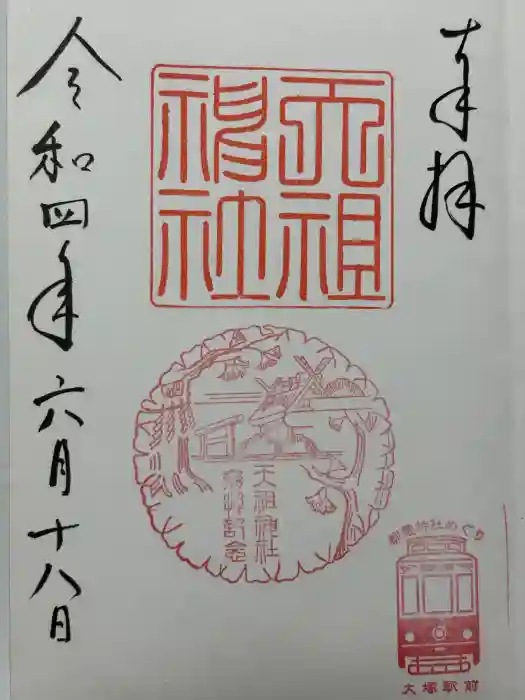 奉拝
天祖
神社
天祖神社
参拝記念
都電神社めぐり
大塚駅前
令和四年六月十八日